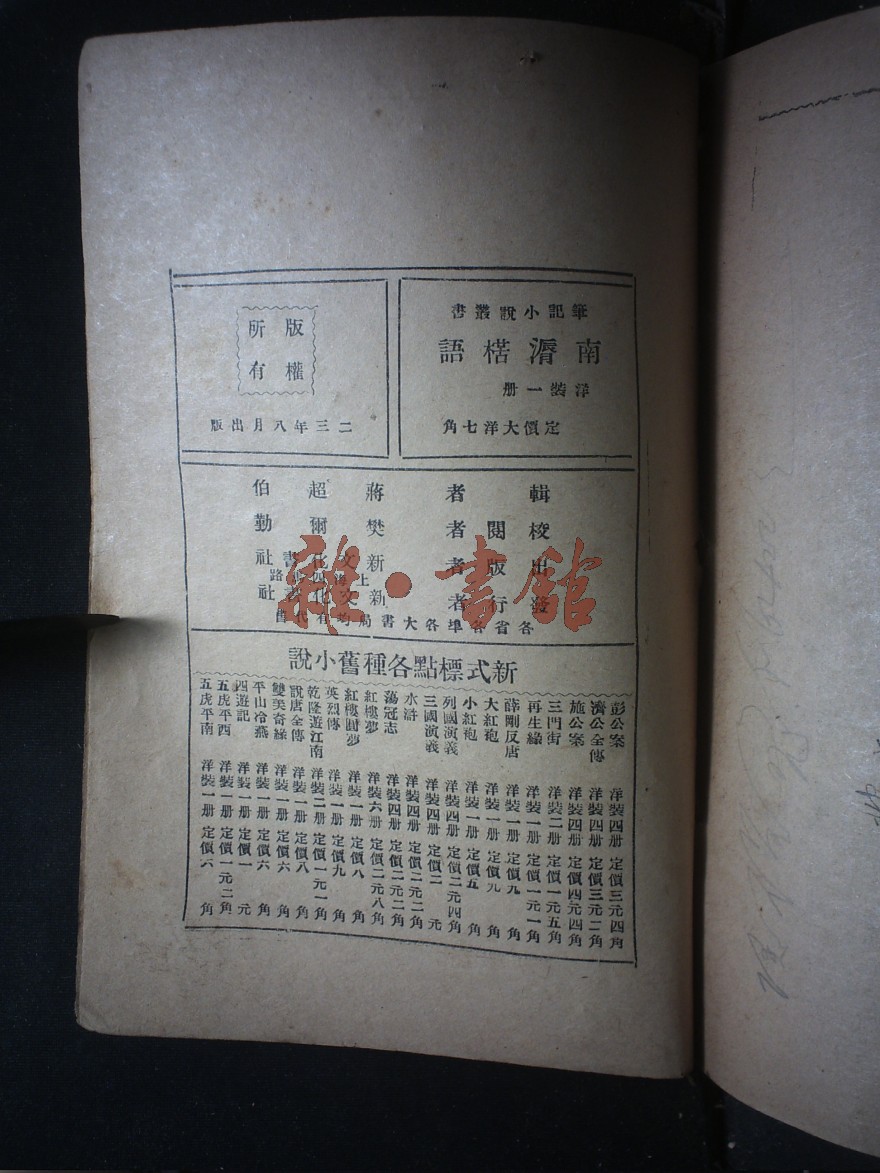 筆記小說叢書
南漘楛語
洋裝一册
定價大洋七角
版權
所有
二三年八月出版
輯者 蔣超伯
校閱者 樊爾勤
出版者 新文化書社
發行者 新文化書社
各省各埠各大書局均有代售
新式標點各種舊小說
彭公案 洋裝四册 定價三元四角
濟公全傳 洋裝四册 定價三元二角
施公案 洋裝四册 定價四元四角
三門街 洋裝二册 定價一元五角
再生緣 洋裝一册 定價一元一角
薛剛反唐 洋裝一册 定價九角
大紅袍 洋裝一册 定價九角
小紅袍 洋裝一册 定價五角
列國演義 洋裝四册 定價二元四角
三國演義 洋裝四册 定價二元
水滸 洋裝四册 定價二元二角
蕩冠志 洋裝四册 定價二元二角
紅樓夢 洋裝六册 定價二元八角
紅樓圓夢 洋裝一册 定價八角
英烈傳 洋裝一册 定價九角
乾隆遊江南 洋裝二册 定價一元一角
說唐全傳 洋裝一册 定價八角
雙美奇緣 洋裝一册 定價六角
平山冷燕 洋裝一册 定價六角
四遊記 洋裝一册 定價一元
五虎平西 洋裝一册 定價一元二角
五虎平南 洋裝一册 定價六角
雜·書館